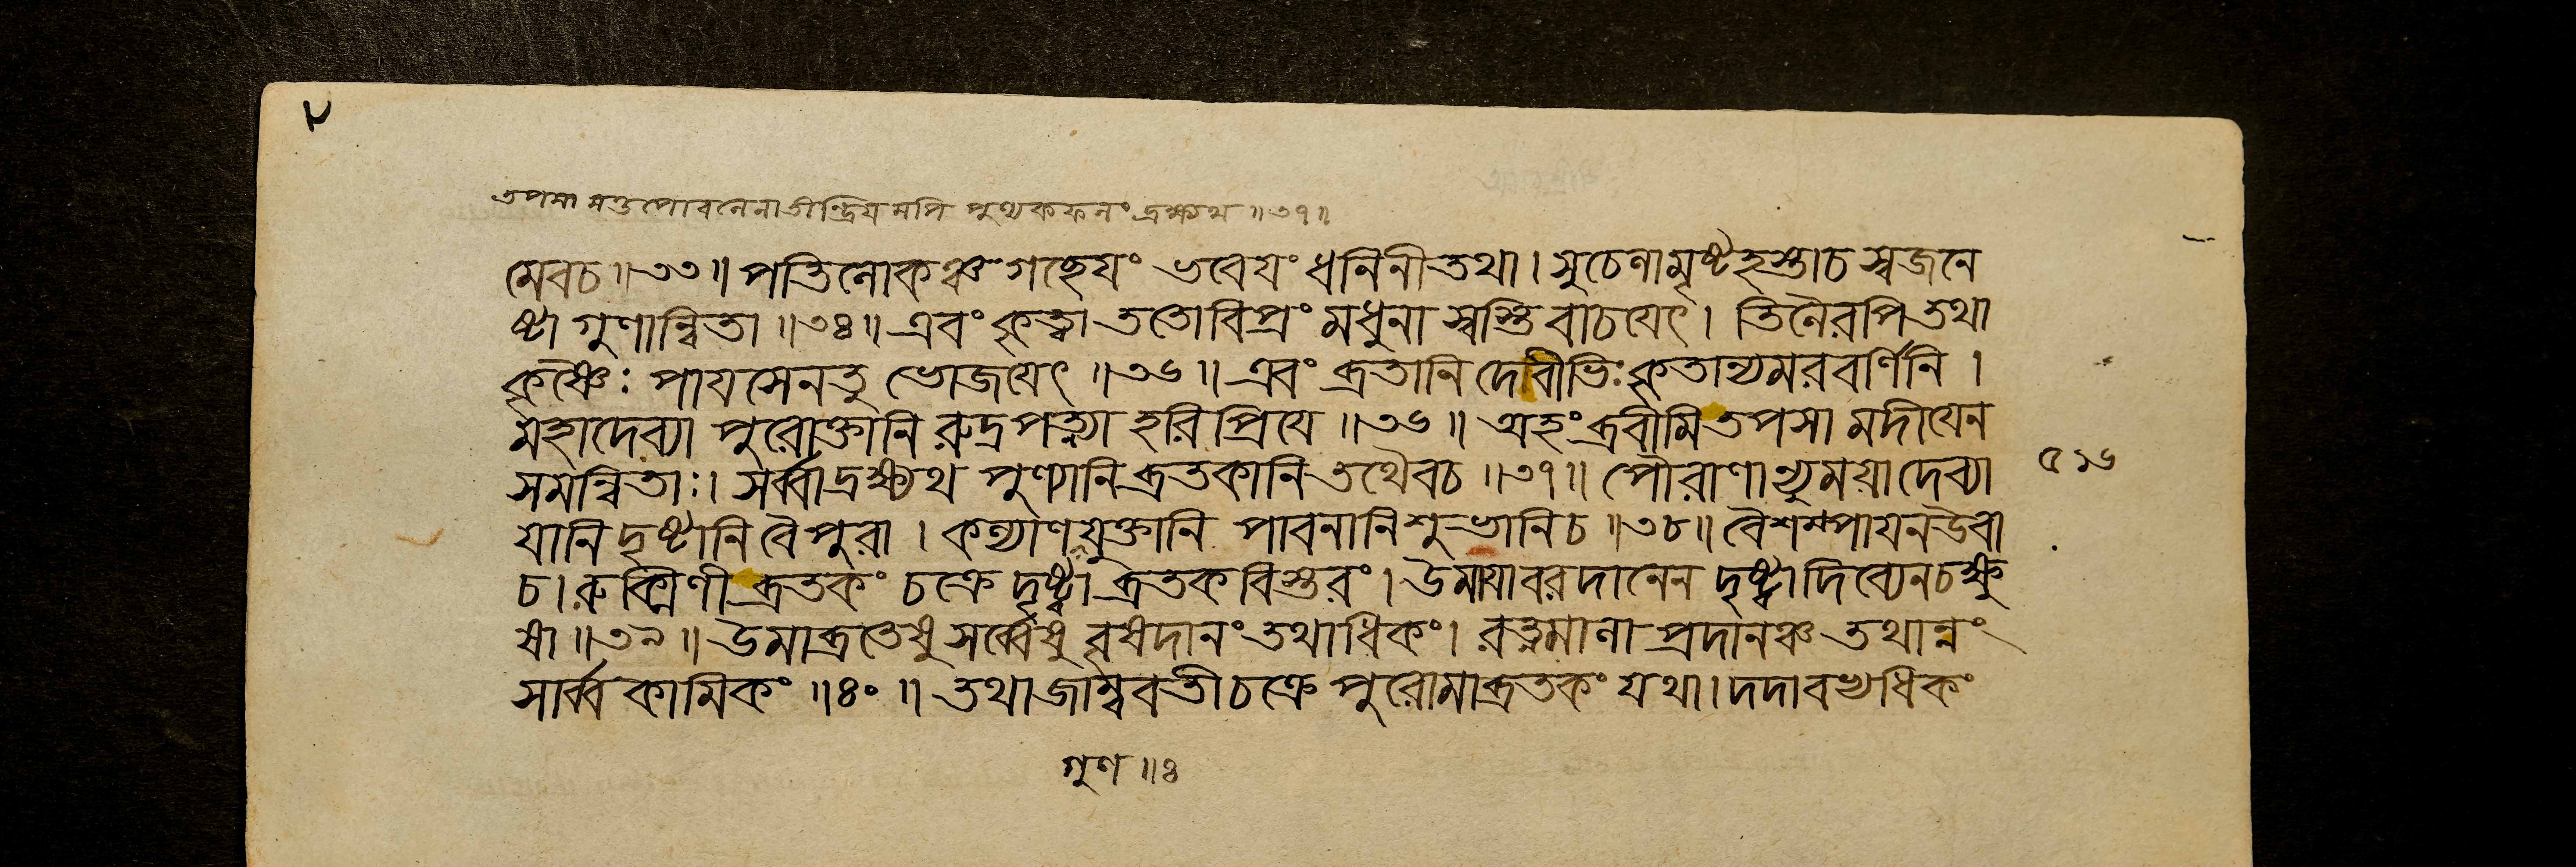 ৮
তপসা মত্তপোবলেনাতীন্দ্রিযমপি পুণ্যকফলং দ্রক্ষ্যথ ॥৩৭॥
মেবচ ॥৩৩॥ পতিলোকঞ্চ গচ্ছেযং ভবেযং ধনিনীতথা। সুচেলামৃষ্টহস্তাচ স্বজনে
ষ্টা গুণান্বিতা ॥৩৪॥ এবং কৃত্বা ততোবিপ্রং মধুনা স্বস্তি বাচযেৎ। তিলৈরপি তথা
কৃষ্ণৈঃ পাযসেনতু ভোজযেৎ ॥৩৬॥ এবং ব্রতানি দেবীভিঃ কৃতান্যমরবর্ণিনি।
মহাদেব্যা পুরোক্তানি রুদ্রপত্ন্যা হরিপ্রিযে ॥৩৬॥ অহং ব্রবীমি তপসা মদীযেন
সমন্বিতাঃ। সর্ব্বাদ্রক্ষ্যথ পুণ্যানি ব্রতকানি তথৈবচ ॥৩৭॥ পৌরাণান্যুময়াদেব্যা
যানি দৃষ্টানি বৈপুরা। কল্যাণযুক্তানি পাবনানি শুভানিচ ॥৩৮॥ বৈশম্পাযনউবা
চ। রুক্মিণী ব্রতকং চক্রে দৃষ্ট্বা ব্রতকবিস্তরং। উমাযাবরদানেন দৃষ্ট্বাদিব্যেনচক্ষু
ষা ॥৩৯॥ উমাব্রতেষু সর্ব্বেষু বৃষদানং তথাধিকং। রত্নমালা প্রদানঞ্চ তথান্নং
সার্ব্বকামিকং ॥৪০॥ তথা জাম্ববতীচক্রে পুরোমাব্রতকং যথা। দদাবভ্যধিকং
৫১৬
গুণ ॥৪